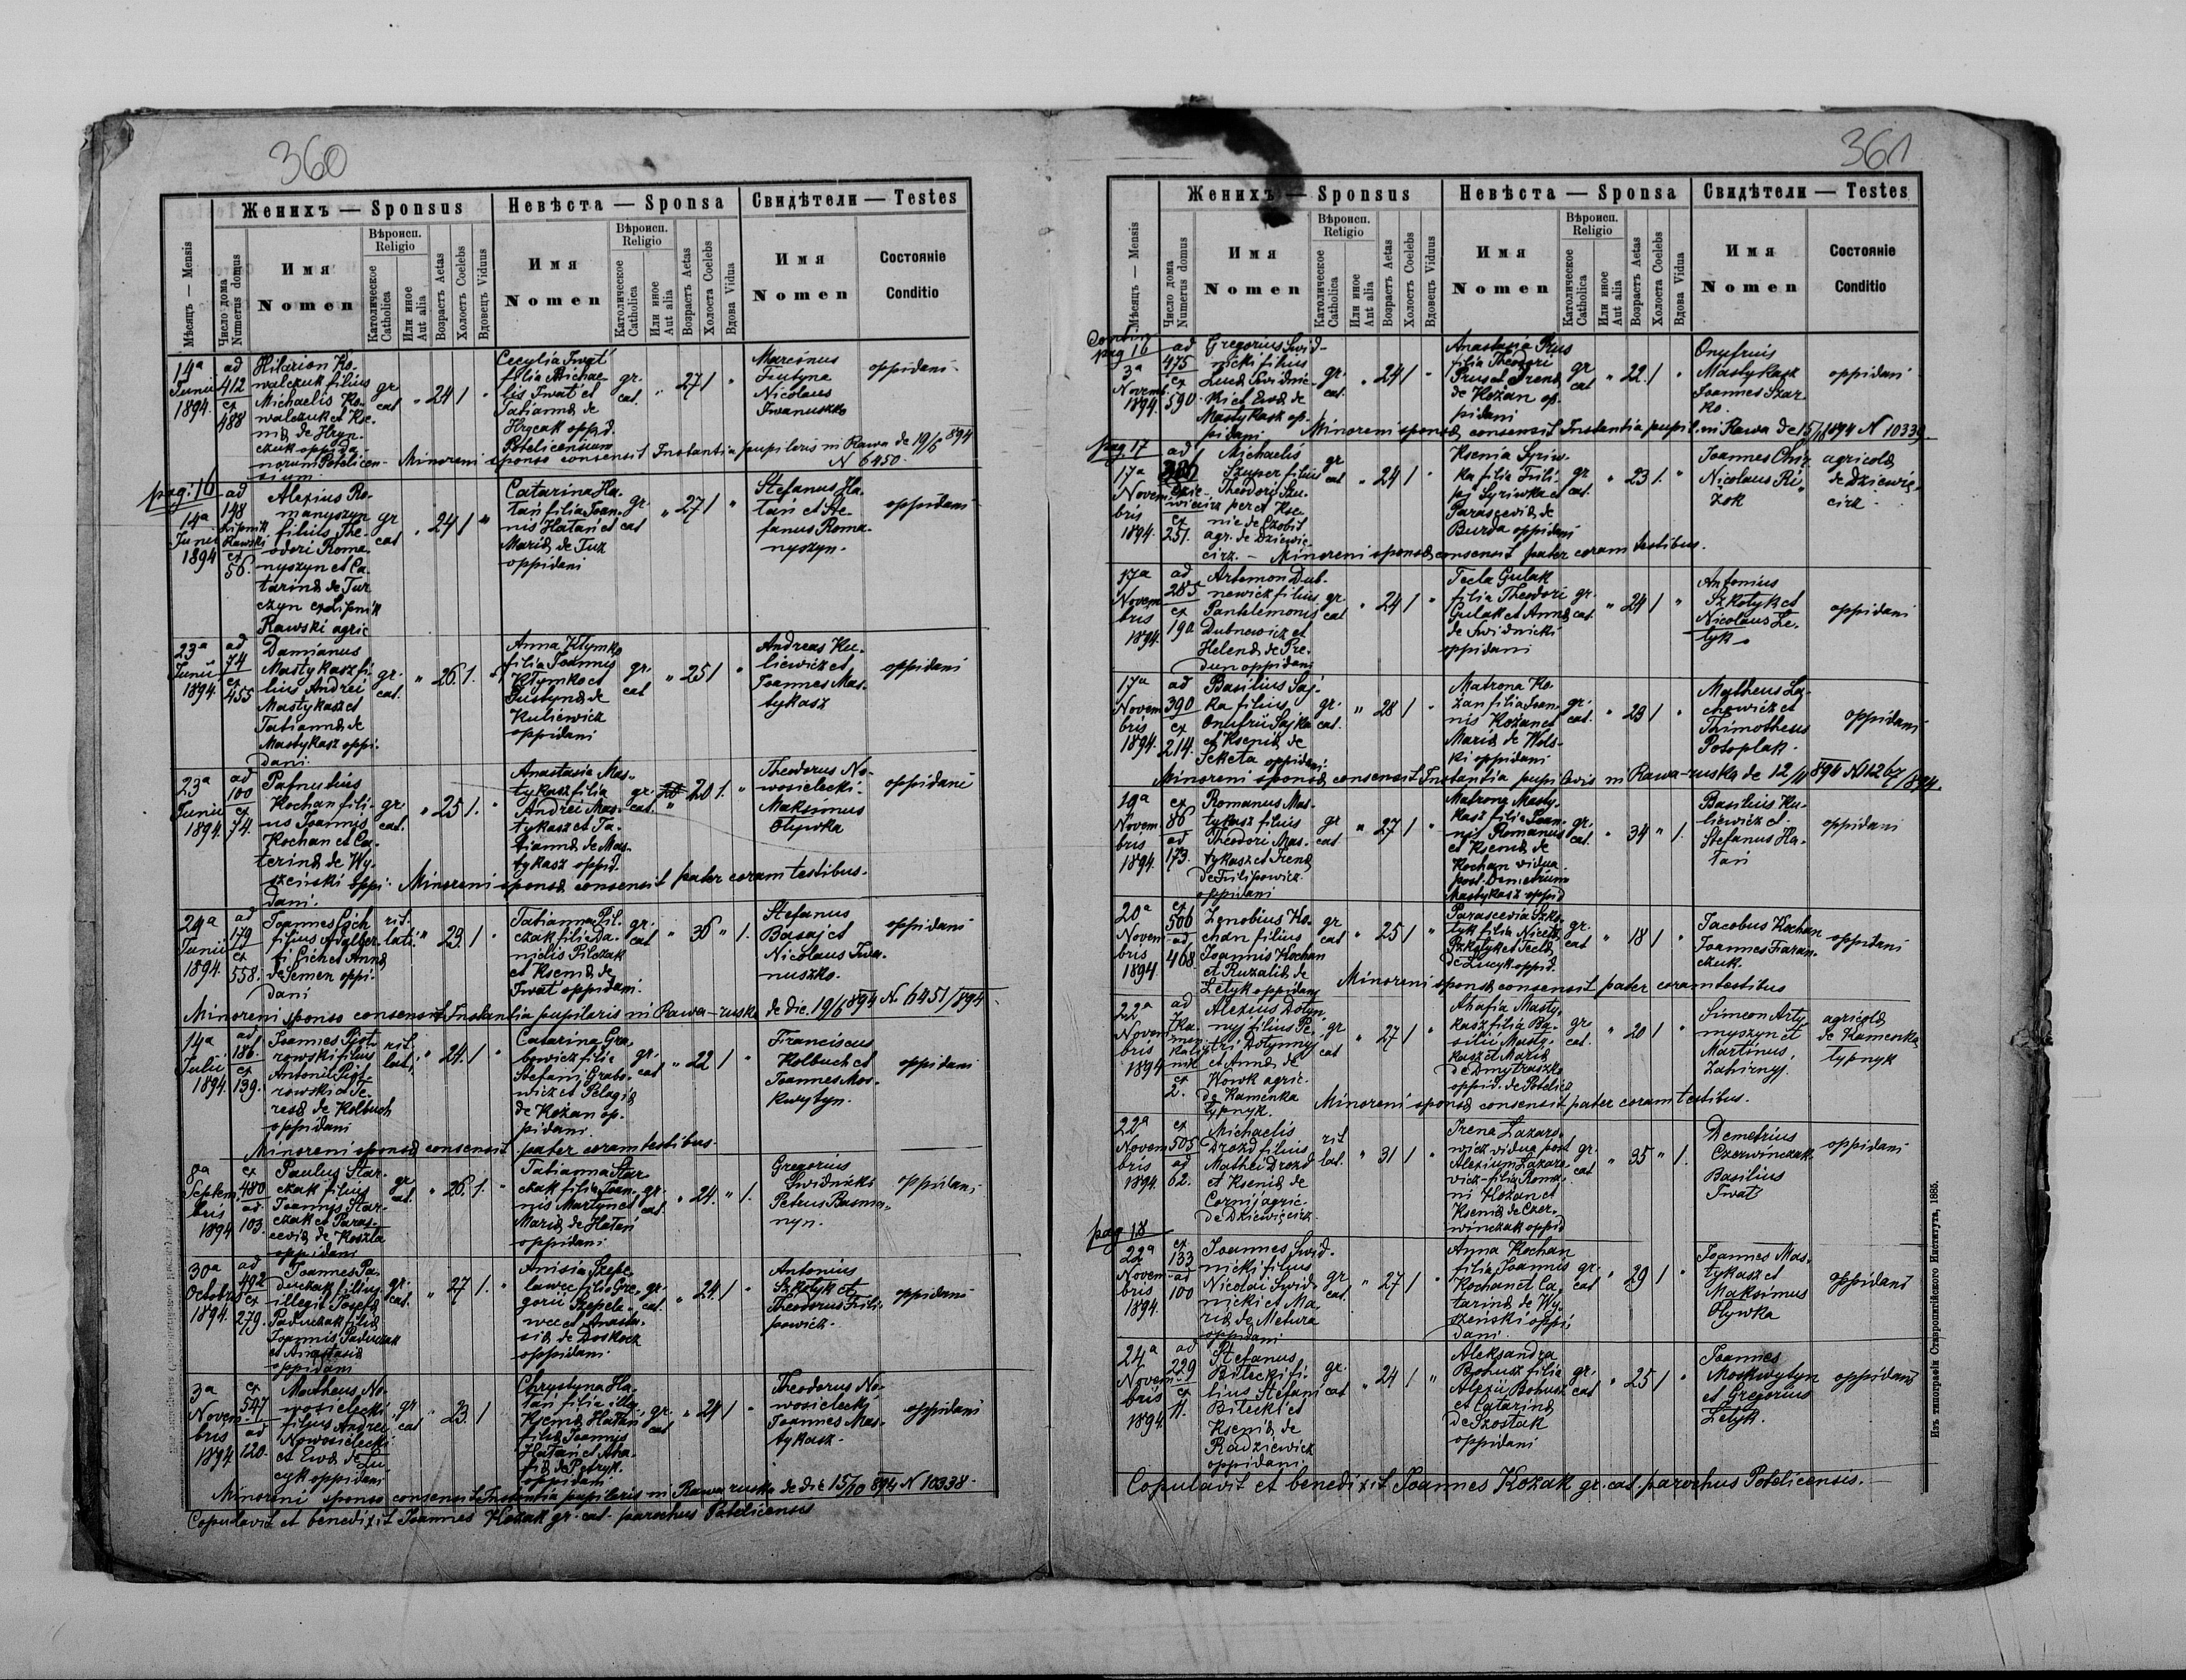 360
Женихъ — Sponsus
Невѣста — Sponsa
Свидѣтели — Testes
Мѣсяцъ — Mensis
Число дома
Numerus domus
Имя
Nomen
Вѣроисп.
Religio
Католическое
Catholica
Или иное
Aut alia
Возрастъ Aetas
Холостъ Coelebs
Вдовецъ Viduus
Имя
Nomen
Вѣроисп.
Religio
Католическое
Catholica
Или иное
Aut alia
Возрастъ Aetas
Холоста Coelebs
Вдова Vidua
Имя
Nomen
Состояніе
Conditio
14a
Junii
1894
ad
412
ex
488
Hilarion Ko-
walczuk filius
Michaelis Ko-
walczuk et Kse-
niæ de Hryn-
czuk oppida-
norum Potelicen-
sium
gr
cat
" 24 1 "
Cecylia Iwat
filia Michae-
lis Iwat et
Tatiannæ de
Hrycak oppid.
Potelicensium
gr.
cat.
" 27 1 "
Marcinus
Fiutyna
Nicolaus
Iwanuszko
oppidani
Minoreni sponso consensit Instantia pupilaris in Rawa de 19/6 894
N 6450
pag: 16
14a
Junii
1894
ad
148
Lipnik
Rawski
ex
56.
Alexius Ro-
manyszyn
filius The-
odori Roma-
nyszyn et Ca-
tarinæ de Tur
czyn ex Lipnik
Rawski agric
gr
cat
" 24 1 "
Catarina Ha-
tań filia Joan-
nis Hatań et
Mariæ de Tuz
oppidani
gr.
cat
" 27 1 "
Stefanus Ha-
tań et Ste-
fanus Roma-
nyszyn.
oppidani
23a
Junii
1894.
ad
74
ex
455
Damianus
Mastykasz fi-
lius Andrei
Mastykasz et
Tatiannæ de
Mastykasz oppi-
dani.
gr.
cat.
" 26 1. "
Anna Kłymko
filia Joannis
Kłymko et
Justynæ de
Kuliewicz
oppidani
gr.
cat
" 25 1 "
Andreas Ku-
liewicz et
Joannes Mas-
tykasz
oppidani
23a
Junii
1894.
ad
100
ex
74.
Pafnutius
Kochan fili-
us Joannis
Kochan et Ca-
terinæ de Wy-
szeński oppi-
dani.
gr.
cat.
" 25 1. "
Anastasia Mas-
tykasz filia
Andrei Mas-
tykasz et Ta-
tiannæ de Mas-
tykasz oppid.
gr.
cat.
" 20 1. "
Theodorus No-
wosielecki.
Maksimus
Oływka
oppidani
Minoreni sponsæ consensit pater coram testibus.
24a
Junii
1894.
ad
179
ex
558.
Joannes Cich
filius Adalber-
ti Cich et Annæ
de Semen oppi-
dani
rit.
lati.
" 23. 1 "
Tatianna Pil-
czak filia Da-
nielis Pilczak
et Kseniæ de
Iwat oppidani.
gr.
cat
" 36 " 1.
Stefanus
Basaj et
Nicolaus Iwa-
nuszko.
oppidani
Minoreni sponso consensit Instantia pupilaris in Rawa-ruska de die. 19/6 894 N. 6451/894
14a
Julii
1894
ad
186.
ex
139.
Joannes Piot-
rowski filius
Antonii Piot-
rowski et Te-
resæ de Kolbuch
oppidani
rit.
lat.
" 24. 1 "
Catarina Gra-
bowicz filia
Stefani Grabo-
wicz et Pelagiæ
de Kożan op-
pidani.
gr.
cat
" 22 1 "
Franciscus
Kolbuch et
Joannes Mos-
kwytyn.
oppidani
Minoreni sponsæ consensit pater coram testibus.
8a
Septem-
bris
1894
ex
480
ad
103.
Paulus Star-
czak filius
Joannis Star-
czak et Paras-
ceviæ de Koszta
oppidani
gr
cat.
" 26 1. "
Tatianna Star
czak filia Joan-
nis Martyn et
Mariæ de Hatań
oppidani
gr.
cat.
" 24. " 1.
Gregorius
Swidnicki
Petrus Basma-
nyn.
oppidani
30a
Octobris
1894.
ad
492
ex
279.
Joannes Pa-
duczak filius
illegit. Josefæ
Paduczak filiæ
Joannis Paduczak
et Anastasiæ
oppidani
gr.
cat.
" 27 1. "
Anisia Szepe-
lawec filia Gre-
gorii Szepela-
wec et Anasta-
siæ de Doskocz
oppidani.
gr.
cat.
" 24 1 "
Antonius
Szkołyk et
Theodorus Fili-
powicz.
oppidani
3a
Novem-
bris
1894
ex
547
ad
120.
Matheus No-
wosielecki
filius Andrei
Nowosielecki
et Evæ de Lu-
cyk oppidani
gr
cat
" 23. 1
Chrystyna Ha-
tań filia illg.
Kseniæ Hatań
filiæ Joannis
Hatań et Aha-
fiæ de Petryk.
oppidani
gr.
cat
" 24 1 "
Theodorus No-
wosielecki
Joannes Mas-
tykasz.
oppidani
Minoreni sponso consensit Instantia pupilaris in Rawa ruska de die 15/10 894 N 10338.
Copulavit et benedixit Joannes Kozak gr. cat. parochus Potelicensis
361
Женихъ — Sponsus
Невѣста — Sponsa
Свидѣтели — Testes
Мѣсяцъ — Mensis
Число дома
Numerus domus
Имя
Nomen
Вѣроисп.
Religio
Католическое
Catholica
Или иное
Aut alia
Возрастъ Aetas
Холостъ Coelebs
Вдовецъ Viduus
Имя
Nomen
Вѣроисп.
Religio
Католическое
Catholica
Или иное
Aut alia
Возрастъ Aetas
Холоста Coelebs
Вдова Vidua
Имя
Nomen
Состояніе
Conditio
pag 16
3a
Novem
1894.
ad
475
ex
590.
Gregorius Swid-
nicki filius
Lucæ Swidnic-
ki et Evæ de
Mastykasz op-
pidani
gr.
cat.
" 24 1 "
Anastasia Prus
filia Theodori
Prus et Irenæ
de Kożan op-
pidani
gr
cat
" 22. 1 "
Onufrius
Mastykasz
Joannes Szar-
ko.
oppidani
Minoreni sponsæ consensit Instantia pupil. in Rawa de 15/10 894 N 10339
pag 17
17a
Novem-
bris
1894.
ad
ex
251.
Michaelis
Szuper filius
Theodori Szu-
per et Kse-
niæ de Czobit
agr. de Dziewię-
cirz.
gr
cat
" 24 1 "
Ksenia Syriw-
ka filia Fili-
pi Syriwka et
Parasceviæ de
Burda oppidani
gr
cat.
" 23 1. "
Joannes Chiz
Nicolaus Ri-
żok
agricolæ
de Dziewię-
cirz.
Minoreni sponsæ consensit pater coram testibus.
17a
Novem
bris
1894.
ad
285
ex
192
Artemon Dub-
newicz filius
Pantelemonis
Dubnewicz et
Helenæ de Pre-
dun oppidani
gr.
cat
" 24 1 "
Tecla Gulak
filia Theodori
Gulak et Annæ
de Swidnicki
oppidani
gr.
cat.
" 24 1 "
Antonius
Szkołyk et
Nicolaus Le-
tyk
oppidani
17a
Novem
bris
1894.
ad
390
ex
214.
Basilius Saj-
ka filius
Onufrii Sajka
et Kseniæ de
Seketa oppidani.
gr.
cat.
" 28 1 "
Matrona Ko-
żan filia Joan-
nis Kożan et
Mariæ de Wols-
ki oppidani
gr.
cat.
" 23 1 "
Matheus La-
chowicz et
Thimotheus
Potoplak.
oppidani
Minoreni sponsæ consensit Instantia pupilaris in Rawa-ruska de 12/11 894 N 11267/894.
19a
Novem-
bris
1894.
ex
86
ad
173.
Romanus Mas-
tykasz filius
Theodori Mas-
tykasz et Irenæ
de Filipowicz
oppidani
gr
cat
" 27 1 "
Matrona Masty-
kasz filia Joan-
nis Romanus
et Kseniæ de
Kochan vidua
post. Demetrium
Mastykasz oppid
gr.
cat.
" 34 " 1.
Basilius Ku-
liewicz et
Stefanus Ha-
tań
oppidani
20a
Novem-
bris
1894
ex
506
ad
468.
Zenobius Ko-
chan filius
Joannis Kochan
et Ruzaliæ de
Letyk oppidani
gr
cat
" 25 1 "
Parascevia Szko-
tyk filia Nicetæ
Szkotyk et Teclæ
de Lucyk oppid.
gr.
cat
" 18 1 "
Jacobus Kochan
Joannes Faran-
czuk.
oppidani
Minoreni sponsæ consensit pater coram testibus
22a
Novem-
bris
1894
ad
7 Ka-
men-
ka
ex
2.
Alexius Dotyn-
nyj filius Pe-
tri Dotynnyj
et Annæ de
Wowk agric.
de Kamenka
typnyk.
gr
cat
" 27 1 "
Ahafia Masty-
kasz filia Ba-
silii Masty-
kasz et Mariæ
de Dmytraszko
oppid. de Potelicz
gr.
cat.
" 20 1 "
Simeon Arty-
myszyn et
Martinus
Zahirnyj.
agricolæ
de Kamenka
typnyk
Minoreni sponsæ consensit pater coram testibus.
22a
Novem
bris
1894.
ex
505
ad
62.
Michaelis
Drozd filius
Mathei Drozd
et Kseniæ de
Cornij agric.
de Dziewięcirz
rit
lat.
" 31 1 "
Irena Lazaro-
wicz vidua post
Alexium Lazaro-
wicz filia Roma-
ni Kożan et
Kseniæ de Czer-
winczak oppid
gr.
cat
" 35 " 1.
Demetrius
Czerwinczak
Basilius
Iwat
oppidani
pag 18
22a
Novem-
bris
1894.
ex
133
ad
100
Joannes Swid-
nicki filius
Nicolai Swid-
nicki et Ma-
riæ de Metura
oppidani
gr
cat.
" 27 1 "
Anna Kochan
filia Joannis
Kochan et Ca-
tarinæ de Wy-
szeński oppi-
dani.
gr.
cat
" 29 1 "
Joannes Mas-
tykasz et
Maksimus
Oływka
oppidani
24a
Novem-
bris
1894.
ad
229
ex
11.
Stefanus
Bilecki fi-
lius Stefani
Bilecki et
Kseniæ de
Radziewicz
oppidani.
gr.
cat
" 24 1 "
Aleksandra
Bohusz filia
Alexii Bohusz
et Catarinæ
de Szostak
oppidani
gr.
cat
" 25 1 "
Joannes
Moskwytyn
et Gregorius
Letyk.
oppidani
Copulavit et benedixit Joannes Kozak gr. cat. parochus Potelicensis.
Изъ типографіи Ставропигійского Института, 1885.